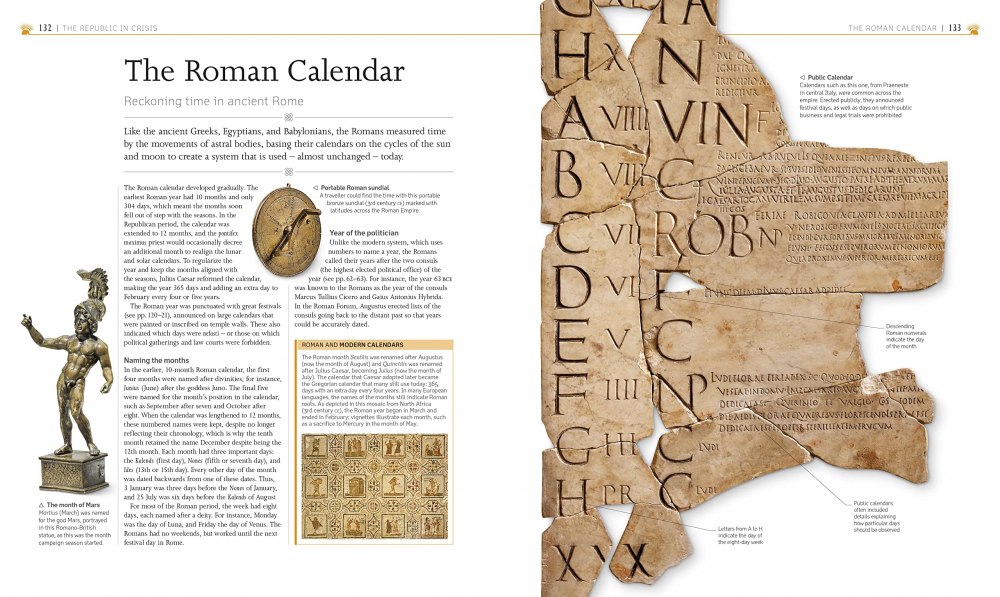 132 | THE REPUBLIC IN CRISIS
The Roman Calendar
Reckoning time in ancient Rome
Like the ancient Greeks, Egyptians, and Babylonians, the Romans measured time
by the movements of astral bodies, basing their calendars on the cycles of the sun
and moon to create a system that is used – almost unchanged – today.
The Roman calendar developed gradually. The
earliest Roman year had 10 months and only
304 days, which meant the months soon
fell out of step with the seasons. In the
Republican period, the calendar was
extended to 12 months, and the pontifex
maximus priest would occasionally decree
an additional month to realign the lunar
and solar calendars. To regularize the
year and keep the months aligned with
the seasons, Julius Caesar reformed the calendar,
making the year 365 days and adding an extra day to
February every four or five years.
The Roman year was punctuated with great festivals
(see pp. 120–21), announced on large calendars that
were painted or inscribed on temple walls. These also
indicated which days were nefasti – or those on which
political gatherings and law courts were forbidden.
Naming the months
In the earlier, 10-month Roman calendar, the first
four months were named after divinities, for instance,
Junius (June) after the goddess Juno. The final five
were named for the month's position in the calendar,
such as September after seven and October after
eight. When the calendar was lengthened to 12 months,
these numbered names were kept, despite no longer
reflecting their chronology, which is why the tenth
month retained the name December despite being the
12th month. Each month had three important days:
the Kalends (first day), Nones (fifth or seventh day), and
Ides (13th or 15th day). Every other day of the month
was dated backwards from one of these dates. Thus,
3 January was three days before the Nones of January,
and 25 July was six days before the Kalends of August
For most of the Roman period, the week had eight
days, each named after a deity. For instance, Monday
was the day of Luna, and Friday the day of Venus. The
Romans had no weekends, but worked until the next
festival day in Rome.
◁ Portable Roman sundial
A traveller could find the time with this portable
bronze sundial (3rd century CE) marked with
latitudes across the Roman Empire.
Year of the politician
Unlike the modern system, which uses
numbers to name a year, the Romans
called their years after the two consuls
(the highest elected political office) of the
year (see pp. 62–63). For instance, the year 63 BCE
was known to the Romans as the year of the consuls
Marcus Tullius Cicero and Gaius Antonius Hybrida.
In the Roman Forum, Augustus erected lists of the
consuls going back to the distant past so that years
could be accurately dated.
ROMAN AND MODERN CALENDARS
The Roman month Sextilis was renamed after Augustus
(now the month of August) and Quinctilis was renamed
after Julius Caesar, becoming Julius (now the month of
July). The calendar that Caesar adopted later became
the Gregorian calendar that many still use today: 365
days with an extra day every four years. In many European
languages, the names of the months still indicate Roman
roots. As depicted in this mosaic from North Africa
(3rd century CE), the Roman year began in March and
ended in February; vignettes illustrate each month, such
as a sacrifice to Mercury in the month of May.
△ The month of Mars
Martius (March) was named
for the god Mars, portrayed
in this Romano-British
statue, as this was the month
campaign season started.
THE ROMAN CALENDAR | 133
◁ Public Calendar
Calendars such as this one, from Praeneste
in central Italy, were common across the
empire. Erected publicly, they announced
festival days, as well as days on which public
business and legal trials were prohibited
Descending
Roman numerals
indicate the day
of the month
Public calendars
often included
details explaining
how particular days
should be observed
Letters from A to H
indicate the day of
the eight-day week
H X N
A VIIII VIN F
B VIII C
C VII ROB NP
D VI
E V C
F IIII NP
G III C LUDI
H PR C LUDI
XVX